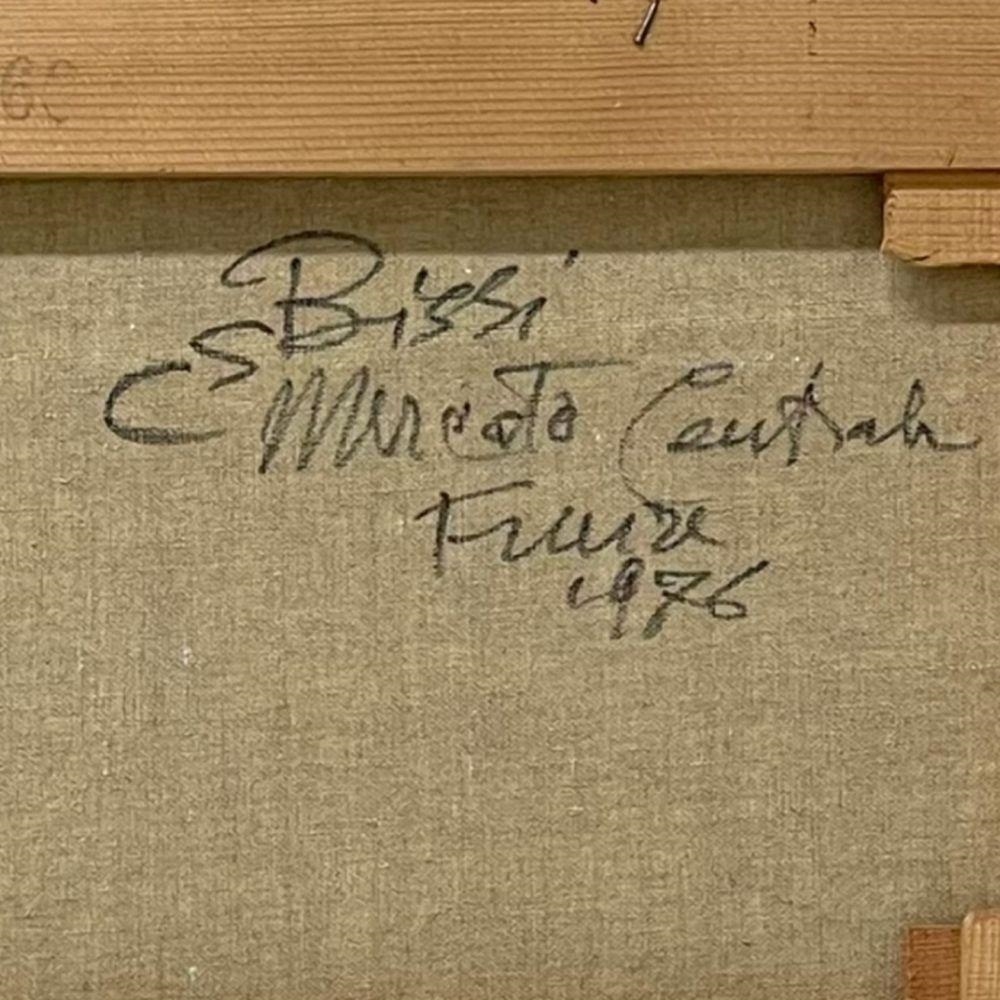 60
Bissi
S Mercato Centrale
Firenze
1976